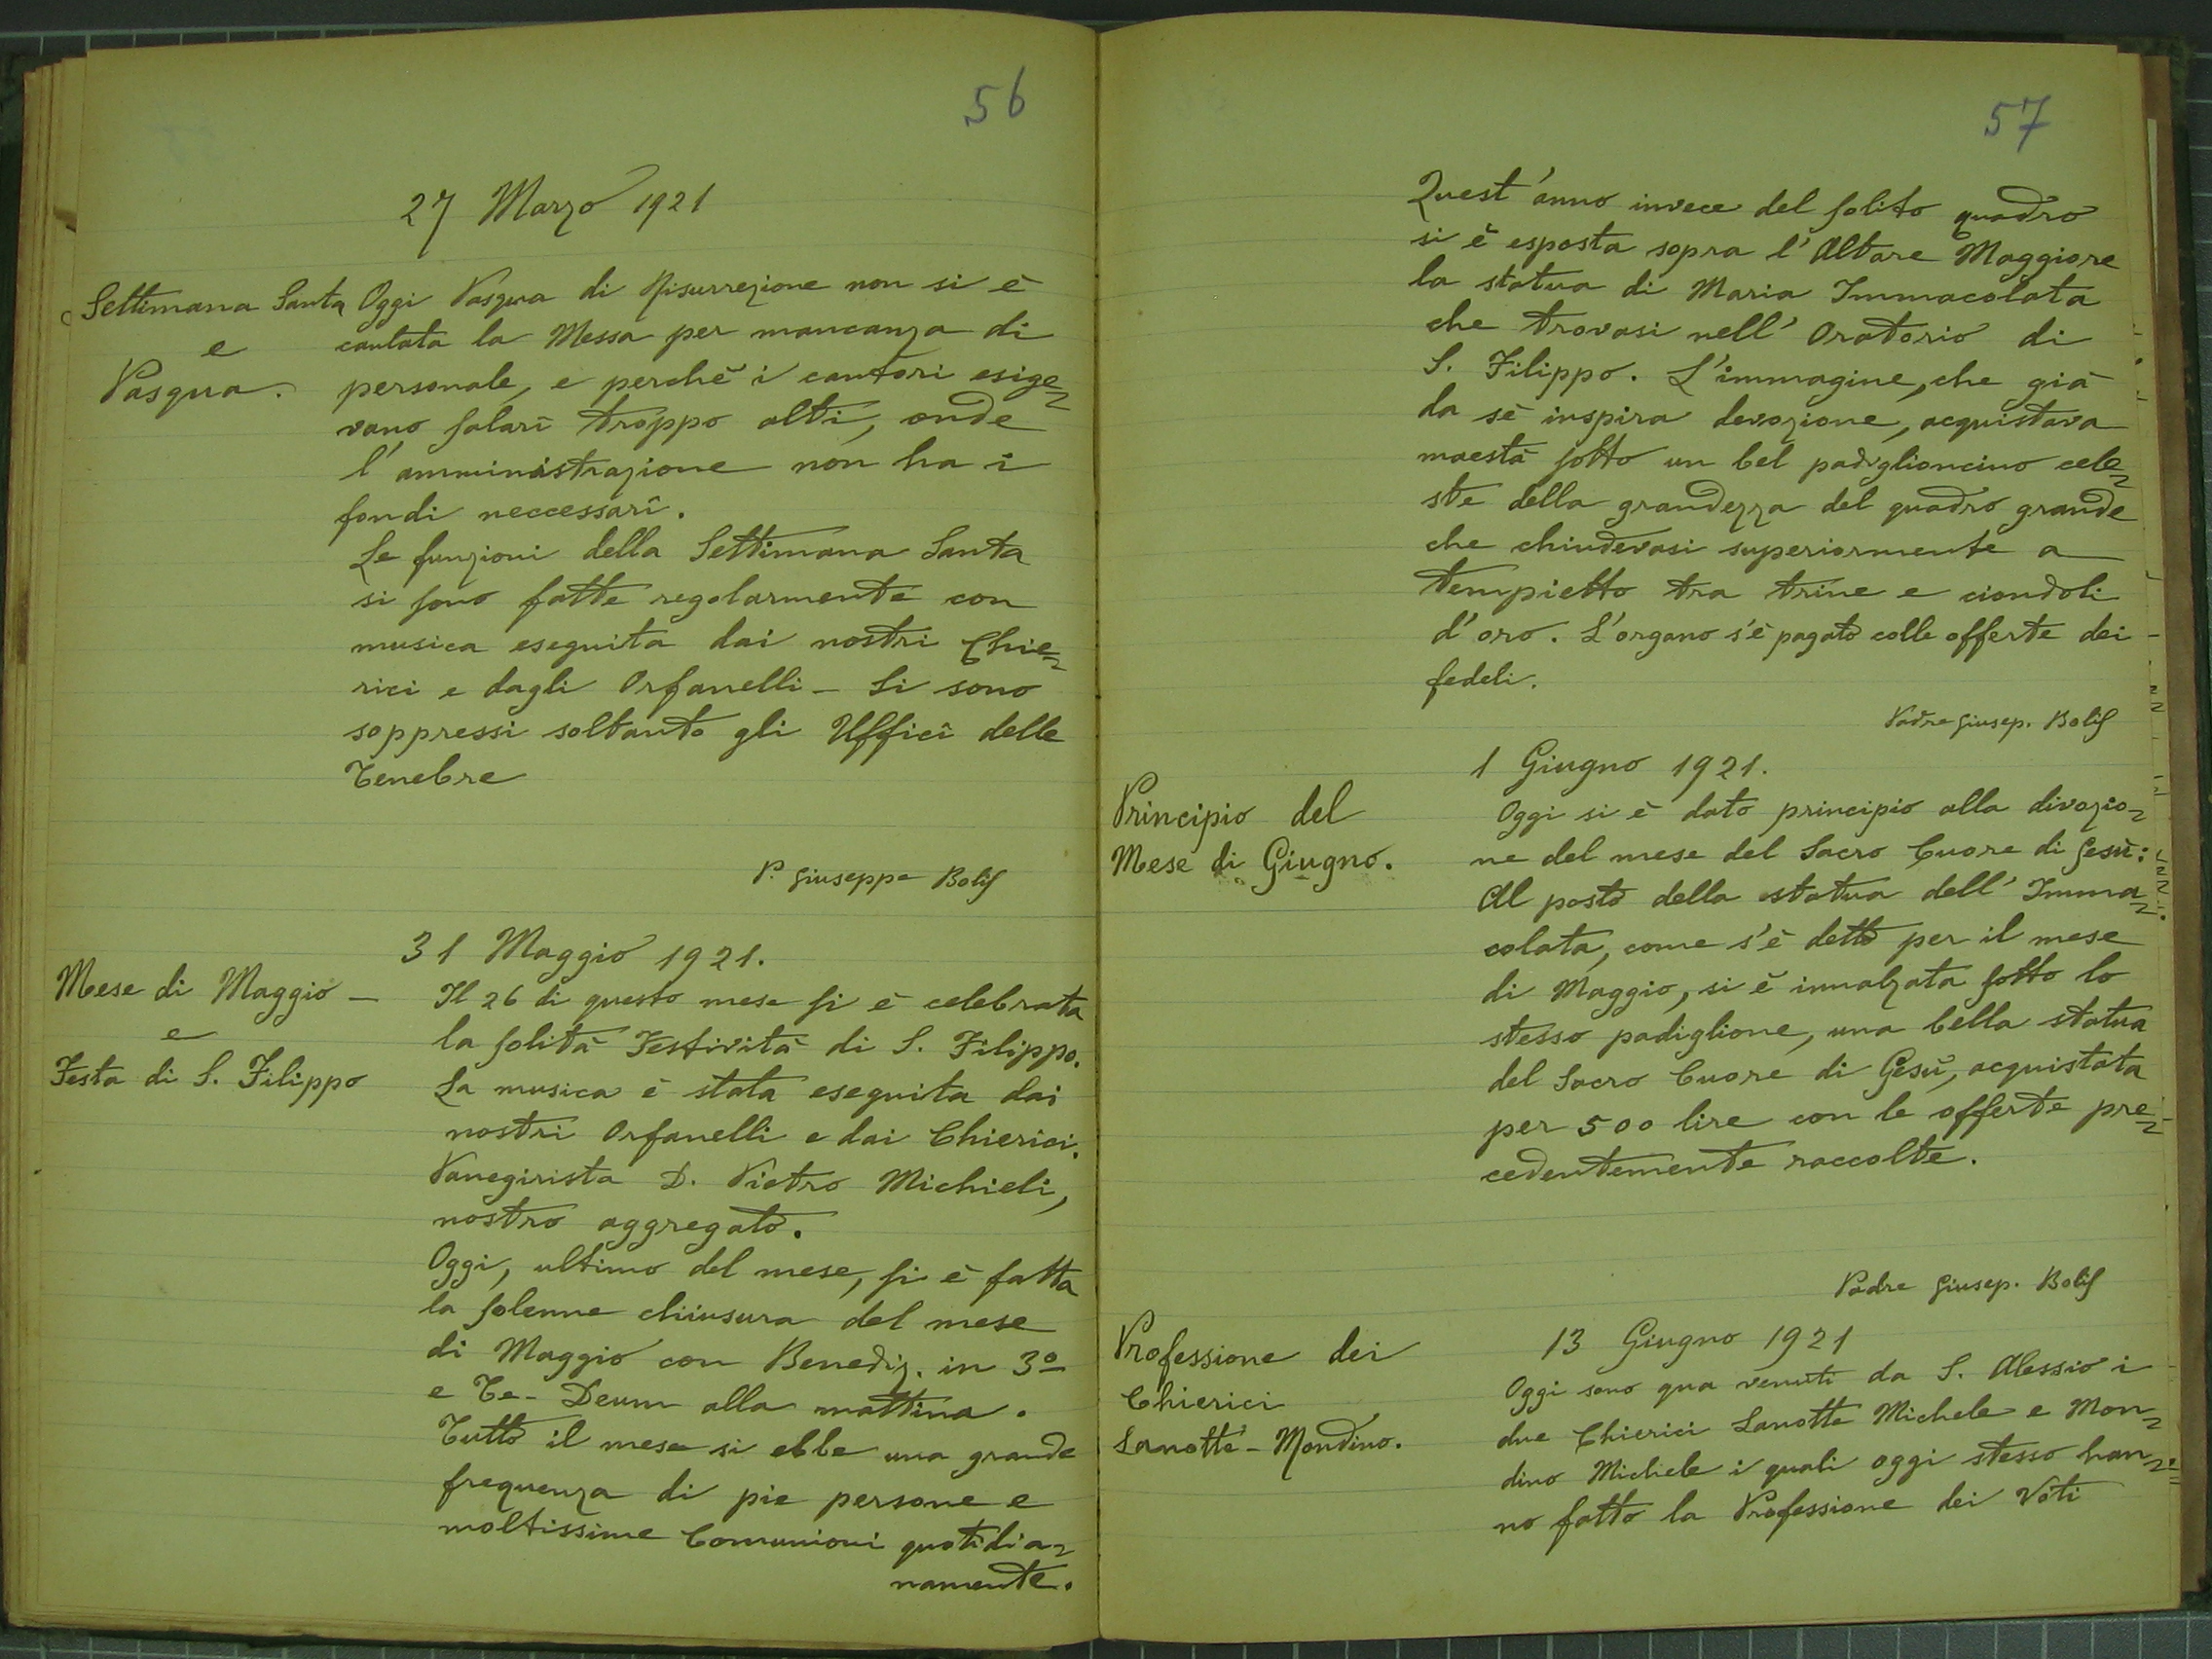 56
27 Marzo 1921
Settimana Santa
e
Pasqua.
Oggi Pasqua di Risurrezione non si è
cantata la Messa per mancanza di
personale, e perchè i cantori esige=
vano salarî troppo alti, onde
l'amministrazione non ha i
fondi neccessarî.
Le funzioni della Settimana Santa
si sono fatte regolarmente con
musica eseguita dai nostri Chie=
rici e dagli Orfanelli - Si sono
soppressi soltanto gli Ufficî delle
Tenebre
P. Giuseppe Bolis
31 Maggio 1921.
Mese di Maggio -
e
Festa di S. Filippo
Il 26 di questo mese si è celebrata
la solita Festività di S. Filippo.
La musica è stata eseguita dai
nostri Orfanelli e dai Chierici.
Panegirista D. Pietro Michieli,
nostro aggregato.
Oggi, ultimo del mese, si è fatta
la solenne chiusura del mese
di Maggio con Benediz. in 3º
e Te-Deum alla mattina.
Tutto il mese si ebbe una grande
frequenza di pie persone e
moltissime Comunioni quotidia=
namente.
57
Quest'anno invece del solito quadro
si è esposta sopra l'Altare Maggiore
la statua di Maria Immacolata
che trovasi nell'Oratorio di
S. Filippo. L'immagine, che già
da sè inspira devozione, acquistava
maestà sotto un bel padiglioncino cele=
ste della grandezza del quadro grande
che chiudevasi superiormente a
tempietto tra trine e ciondoli
d'oro. L'organo s'è pagato colle offerte dei
fedeli.
Padre Giusep. Bolis
1 Giugno 1921.
Principio del
Mese di Giugno.
Oggi si è dato principio alla divozio=
ne del mese del Sacro Cuore di Gesù:
Al posto della statua dell'Imma=
colata, come s'è detto per il mese
di Maggio, si è innalzata sotto lo
stesso padiglione, una bella statua
del Sacro Cuore di Gesù, acquistata
per 500 lire con le offerte pre=
cedentemente raccolte.
Padre Giusep. Bolis
13 Giugno 1921
Professione dei
Chierici
Lanotte - Mondino.
Oggi sono qua venuti da S. Alessio i
due Chierici Lanotte Michele e Mon=
dino Michele i quali oggi stesso han=
no fatto la Professione dei Voti